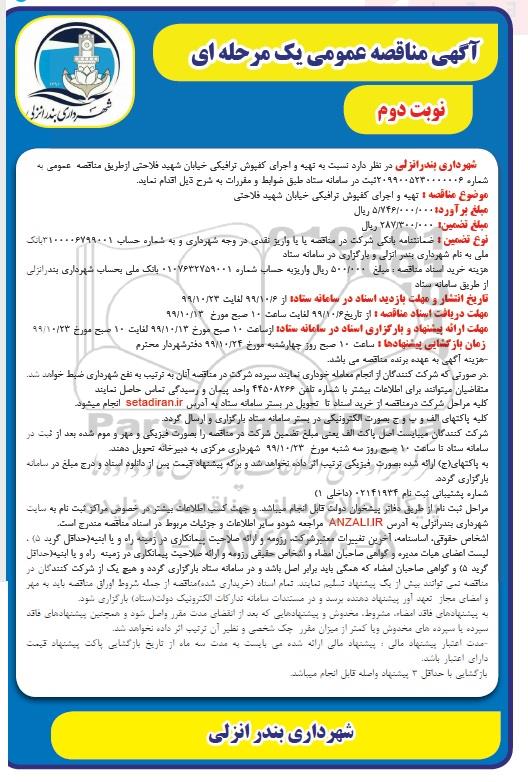 آگهی مناقصه عمومی یک مرحله ای
شهرداری بندرانزلی
نوبت دوم
شهرداری بندرانزلی در نظر دارد نسبت به تهیه و اجرای کفپوش ترافیکی خیابان شهید فلاحتی ازطریق مناقصه عمومی به
شماره ۲۰۹۹۰۰۵۲۳۰۰۰۰۰۰۶ثبت در سامانه ستاد طبق ضوابط و مقررات به شرح ذیل اقدام نماید.
موضوع مناقصه : تهیه و اجرای کفپوش ترافیکی خیابان شهید فلاحتی
مبلغ برآورد: ۵/۷۴۶/۰۰۰/۰۰۰ ریال
مبلغ تضمین: ۲۸۷/۳۰۰/۰۰۰ ریال
نوع تضمین : ضمانتنامه بانکی شرکت در مناقصه یا یا واریز نقدی در وجه شهرداری و به شماره حساب ۳۱۰۰۰۰۶۷۹۹۰۰۱بانک
ملی به نام شهرداری بندر انزلی و بارگزاری در سامانه ستاد
هزینه خرید اسناد مناقصه : مبلغ ۵۰۰/۰۰۰ ریال واریزبه حساب شماره ۰۱۰۷۶۳۲۷۵۹۰۰۱ بانک ملی بحساب شهرداری بندرانزلی
از طریق سامانه ستاد
تاریخ انتشار و مهلت بازدید اسناد در سامانه ستاد: از ۹۹/۱۰/۶ لغایت ۹۹/۱۰/۲۳
مهلت دریافت اسناد مناقصه : از تاریخ ۹۹/۱۰/۶ لغایت ساعت ۱۰ صبح مورخ ۹۹/۱۰/۱۳
مهلت ارائه پیشنهاد و بارگزاری اسناد در سامانه ستاد: ازساعت ۱۰ صبح مورخ ۹۹/۱۰/۱۳ لغایت ۱۰ صبح مورخ ۹۹/۱۰/۲۳
زمان بازگشایی پیشنهادها : ساعت ۱۰ صبح روز چهارشنبه مورخ ۹۹/۱۰/۲۴ دفترشهردار محترم
-هزینه آگهی به عهده برنده مناقصه می باشد.
.در صورتی که شرکت کنندگان از انجام معامله خوداری نمایند سپرده شرکت در مناقصه آنان به ترتیب به نفع شهرداری ضبط خواهد شد.
متقاضیان میتوانند برای اطلاعات بیشتر با شماره تلفن ۴۴۵۰۸۲۶۶ واحد پیمان و رسیدگی تماس حاصل نمایند
کلیه مراحل شرکت درمناقصه از خرید اسناد تا تحویل در بستر سامانه ستاد به آدرس setadiran.ir انجام میشود.
کلیه پاکتهای الف و ب و ج بصورت الکترونیکی در بستر سامانه ستاد بارگزاری و ارسال گردد.
شرکت کنندگان میبایست اصل پاکت الف یعنی مبلغ تضمین شرکت در مناقصه را بصورت فیزیکی و مهر و موم شده بعد از ثبت در
سامانه ستاد تا ساعت ۱۰ صبح روز سه شنبه مورخ ۹۹/۱۰/۲۳ شهرداری مرکزی به دبیرخانه تحویل دهند.
به پاکتهای(ج) ارائه شده بصورت فیزیکی ترتیب اثر داده نخواهد شد و برگه پیشنهاد قیمت پس از دانلود اسناد و درج مبلغ در سامانه
بارگزاری گردد.
شماره پشتیبانی ثبت نام ۰۲۱۴۱۹۳۴ (داخلی ۱)
مراحل ثبت نام از طریق دفاتر پیشخوان دولت قابل انجام میباشد. و جهت کسب اطلاعات بیشتر در خصوص مراکز ثبت نام به سایت
شهرداری بندرانزلی به آدرس ANZALI.IR مراجعه شودو سایر اطلاعات و جزئیات مربوط در اسناد مناقصه مندرج است.
اشخاص حقوقی، اساسنامه، آخرین تغییرات معتبرشرکت، رزومه و ارائه صلاحیت پیمانکاری در زمینه راه و یا ابنیه(حداقل گرید ۵) ،
لیست اعضای هیات مدیره و گواهی صاحبان امضاء و اشخاص حقیقی رزومه و ارائه صلاحیت پیمانکاری در زمینه راه و یا ابنیه(حداقل
گرید ۵) و گواهی صاحبان امضاء که همگی باید برابر اصل باشد و در سامانه ستاد بارگزاری گردد و هیچ یک از شرکت کنندگان در
مناقصه نمی توانند بیش از یک پیشنهاد تسلیم نمایند. تمام اسناد (خریداری شده)مناقصه از جمله شروط اوراق مناقصه باید به مهر
و امضای مجاز تعهد آور پیشنهاد دهنده برسد و در مستندات سامانه تدارکات الکترونیک دولت(ستاد) بارگزاری شود.
به پیشنهادهای فاقد امضاء، مشروط، مخدوش و پیشنهادهایی که بعد از انقضای مدت مقرر واصل شود و همچنین پیشنهادهای فاقد
سپرده یا سپرده های مخدوش ویا کمتر از میزان مقرر چک شخصی و نظیر آن ترتیب اثر داده نخواهد شد.
-مدت اعتبار پیشنهاد مالی : پیشنهاد مالی ارائه شده می بایست به مدت سه ماه از تاریخ بازگشایی پاکت پیشنهاد قیمت
دارای اعتبار باشد.
بازگشایی با حداقل ۳ پیشنهاد واصله قابل انجام میباشد.
شهرداری بندر انزلی